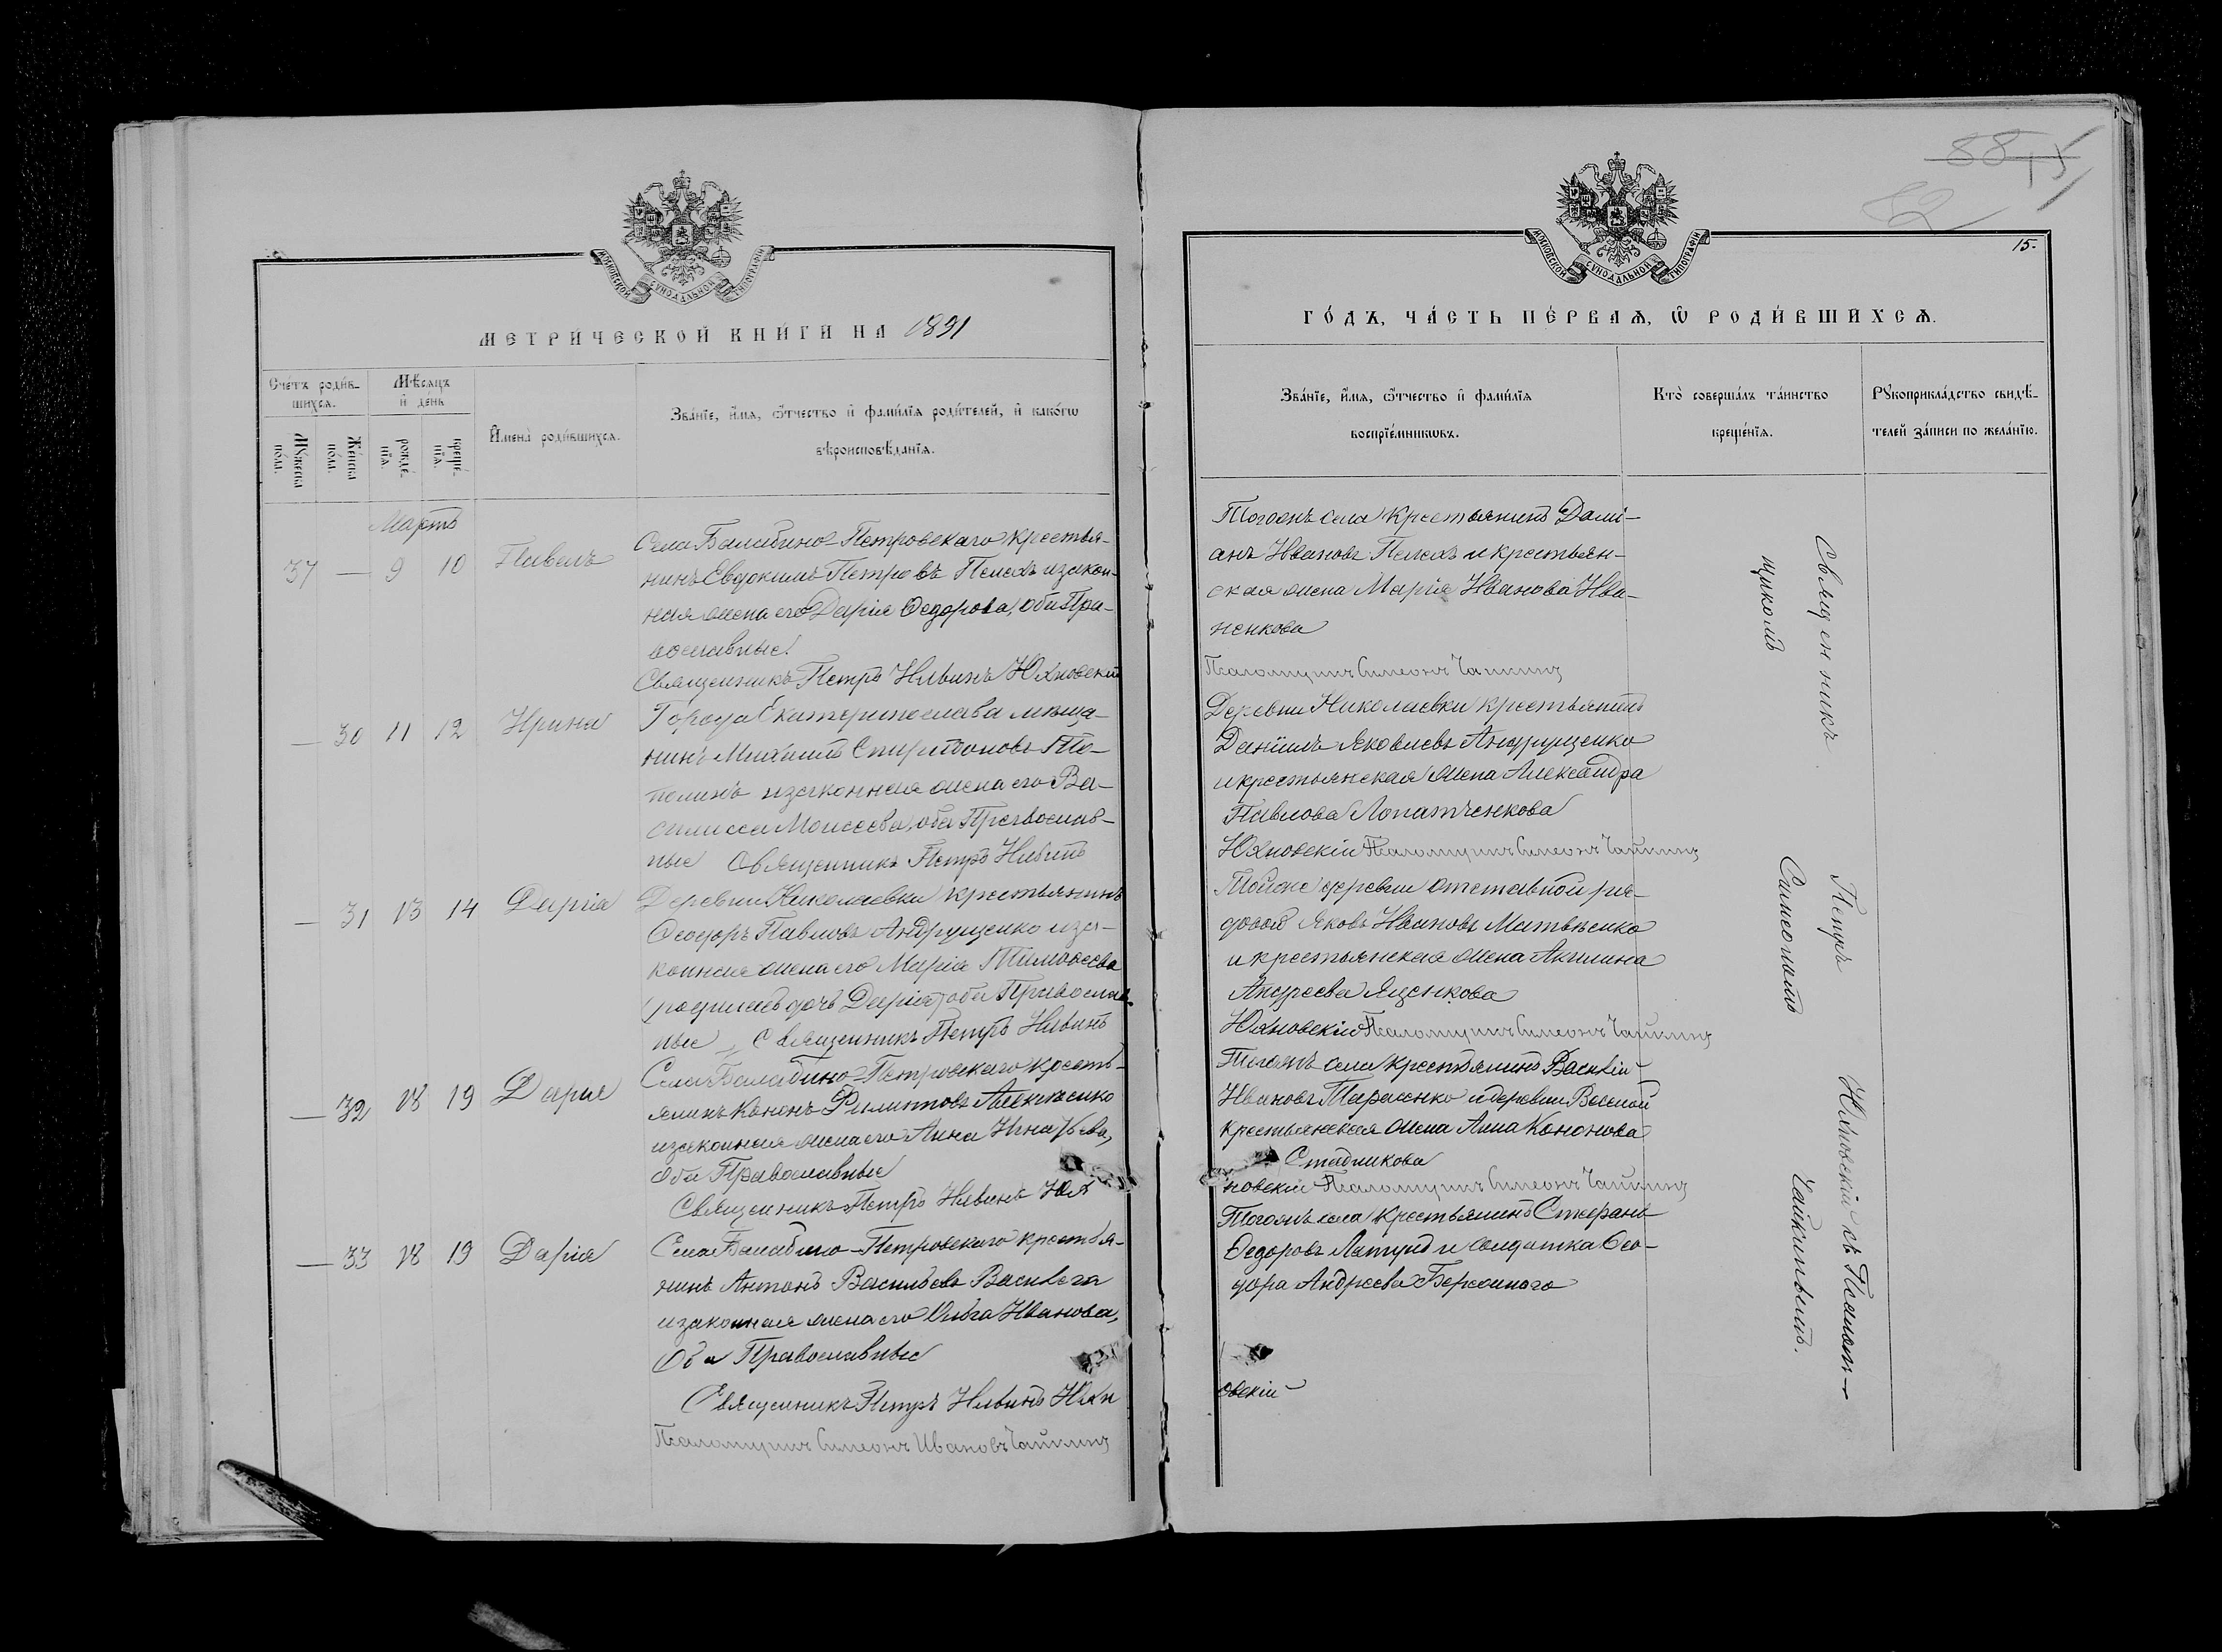 МОСКОВСКОЙ СѴНОДАЛЬНОЙ ТИПОГРАФІИ
МЕТРИ́ЧЕСКОЙ КНИ́ГИ НА 1891
Сче́тъ роди́в-
шихсѧ.
Мѣ́сѧцъ
и҆ день
Мꙋ́жеска по́ла.
Же́нска по́ла.
рожде́нїѧ.
креще́нїѧ.
И҆мена̀ роди́вшихсѧ.
Зва́нїе, и҆́мѧ, ѻ҆́тчество и҆ фами́лїѧ роди́телей, и҆ како́гѡ
вѣроисповѣ́данїѧ.
Мартъ
37 — 9 10 Павелъ
Села Балабино-Петровскаго крестья-
нинъ Евдокимъ Петровъ Пелехъ и закон-
ная жена его Дарія Ѳедорова, оба Пра-
вославные.
Священникъ Петръ Ильинъ Юхновскій
— 30 11 12 Ирина
Города Екатеринослава мѣща-
нинъ Михаилъ Спиридоновъ
и законная жена его Ва-
силисса Моисеева, оба Православ-
ные Священникъ Петръ Ильинъ
— 31 13 14 Дарія
Деревни Николаевки крестьянинъ
Ѳеодоръ Павловъ Андрущенко и за-
конная жена его Марія Тимоѳеева
(родилась дочь Дарія) оба Православ-
ные Священникъ Петръ Ильинъ
— 32 18 19 Дарія
Села Балабино-Петровскаго кресть-
янинъ Кононъ Филиповъ Алексѣенко
и законная жена его Анна Игнатьева,
оба Православные
Священникъ Петръ Ильинъ Юх
— 33 18 19 Дарія
Села Балабино-Петровскаго крестья-
нинъ Антонъ Васильевъ Василега
и законная жена его Ольга Иванова,
Оба Православные
Священникъ Петръ Ильинъ Юхн
Псаломщикъ Симеонъ Ивановъ Чайкинъ
88 15
52
МОСКОВСКОЙ СѴНОДАЛЬНОЙ ТИПОГРАФІИ
15.
ГО́ДЪ, ЧА́СТЬ ПЕ́РВАѦ, Ѡ҆ РОДИ́ВШИХСѦ.
Зва́нїе, и҆́мѧ, ѻ҆́тчество и҆ фами́лїѧ
воспрїе́мникѡвъ.
Кто̀ соверша́лъ та́инство
креще́нїѧ.
Рꙋкоприкла́дство свидѣ́-
телей за́писи по жела́нїю.
Тогожъ села крестьянинъ Дамі-
анъ Ивановъ Пелехъ и крестьян-
ская жена Марія Иванова Ива-
ненкова
Псаломщикъ Симеонъ Чайкинъ
Деревни Николаевки крестьянинъ
Даніилъ Яковлевъ Андрущенко
и крестьянская жена Александра
Павлова Лопатченкова
Юхновскій Псаломщикъ Симеонъ Чайкинъ
Тойже деревни отставной ря-
довой Яковъ Ивановъ Матвѣенко
и крестьянская жена Акилина
Андреева Яценкова
Юхновскій Псаломщикъ Симеонъ Чайкинъ
Тогожъ села крестьянинъ Василій
Ивановъ Тарасенко и деревни Веселой
крестьянская жена Анна Кононова
Стадникова
новскій Псаломщикъ Симеонъ Чайкинъ
Тогожъ села крестьянинъ Стефанъ
Ѳедоровъ и солдатка Ѳео-
дора Андреева
овскій
Священникъ Петръ Юхновскій съ Псалом-
щикомъ Симеономъ Чайкинымъ.